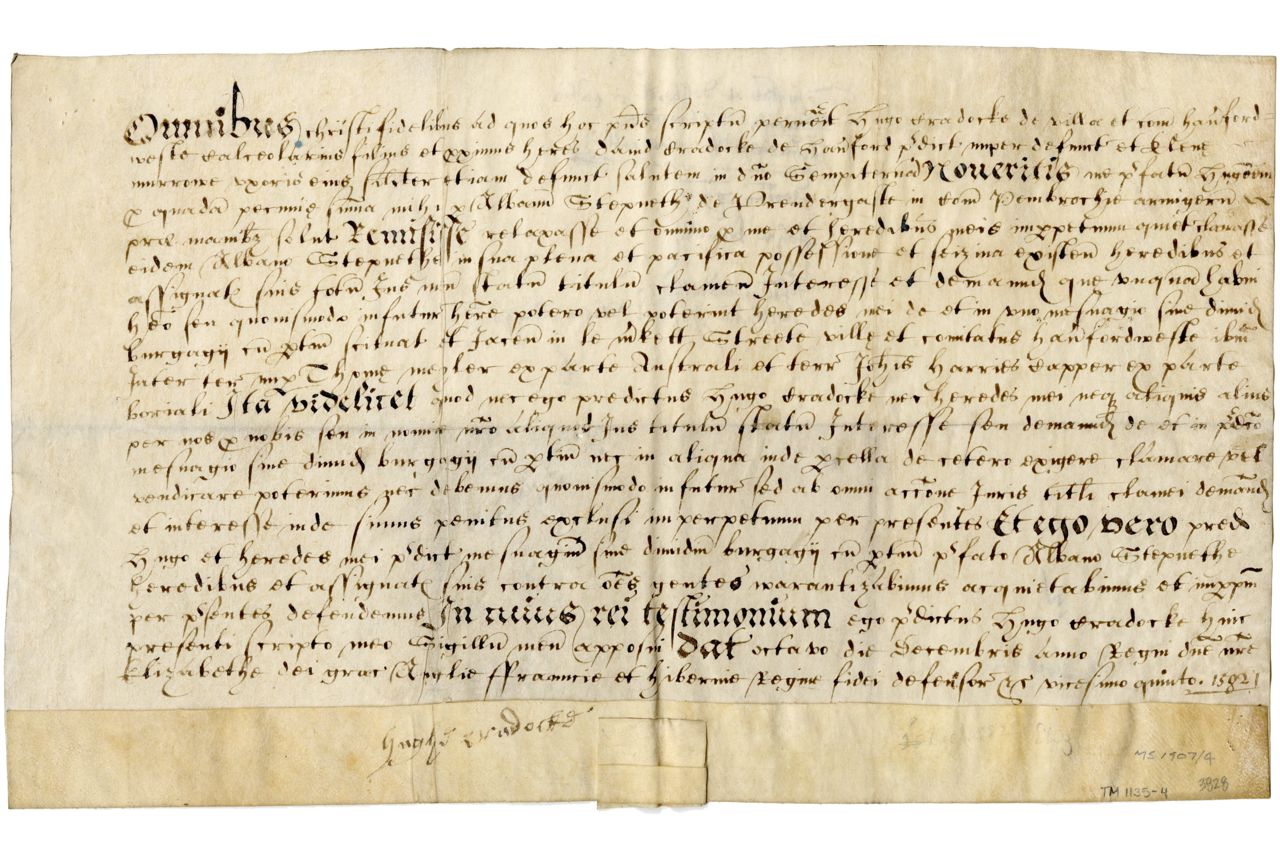 Omnibus christifidelibus ad quos hoc pñs scriptū pervenit Hugo Cradocke de villa et com̄ hauford
weste calceolarius filius et proximus heres David Cradocke de hauford p̄dict nuper defunct et Elene
murrowe uxoris eius similiter etiam defunct salutem in dn̄o Sempiternā Noveritis me p̄fatū Hugonem
p quadā pecunie sum̄a mihi p Albanū Stepneth de Prendergaste in com̄ Pembrochie armigerū
prae manibz solut Remisisse relaxasse et omnino p me et heredibus meis imppetuum quiet clamasse
eidem Albano Stepnethe in sua plena et pacifica possessione et seizina existen heredibus et
assignat suis totū Jus meū statū titulū clameū Interesse et demaund que unquā habui
heō seu quovismodo in futur here potero vel poterint heredes mei de et in uno mesuagio sive dimid
burgagij cū ptiñ scituat et Jaceñ in le Mkett Streete ville et comitatus haufordweste ibm
Inter terr nup Thome meyler ex parte Australi et terr Johis Harries Capper ex parte
boriali Ita videlicet quod nec ego predictus Hugo Cradocke nec heredes mei neq aliquis alius
per nos p nobis seu in nomine nr̄o aliquid Jus titulū statū Interesse seu demaund de et in p̄dco
mesuagio sive dimid burgagij cū ptiñ nec in aliqua inde pcella de cetero exigere clamare vel
vendicare poterimus nec debemus quovismodo in futur sed ab omni accōne Juris titli clamei demaund
et interesse inde simus penitus exclusi imperpetuum per presentes Et ego vero pred
Hugo et heredes mei p̄dict mesuagiū sive dimidiū burgagij cū ptiñ p̄fato Albano Stepnethe
heredibus et assignat suis contra oēs gentes warantizabimus acquietabimus et imppm
per p̄sentes defendemus In cuius rei testimonium ego p̄dictus Hugo Cradocke huic
presenti scripto meo Sigillū meū apposui Dat octavo die Decembris anno Regni dn̄e nr̄e
Elizabethe dei grac Anglie ffrauncie et hibernie Regine fidei defensor &c vicesimo quinto. 1582
hughe Cradocke
MS 1907/4
TM 1135-4 3828